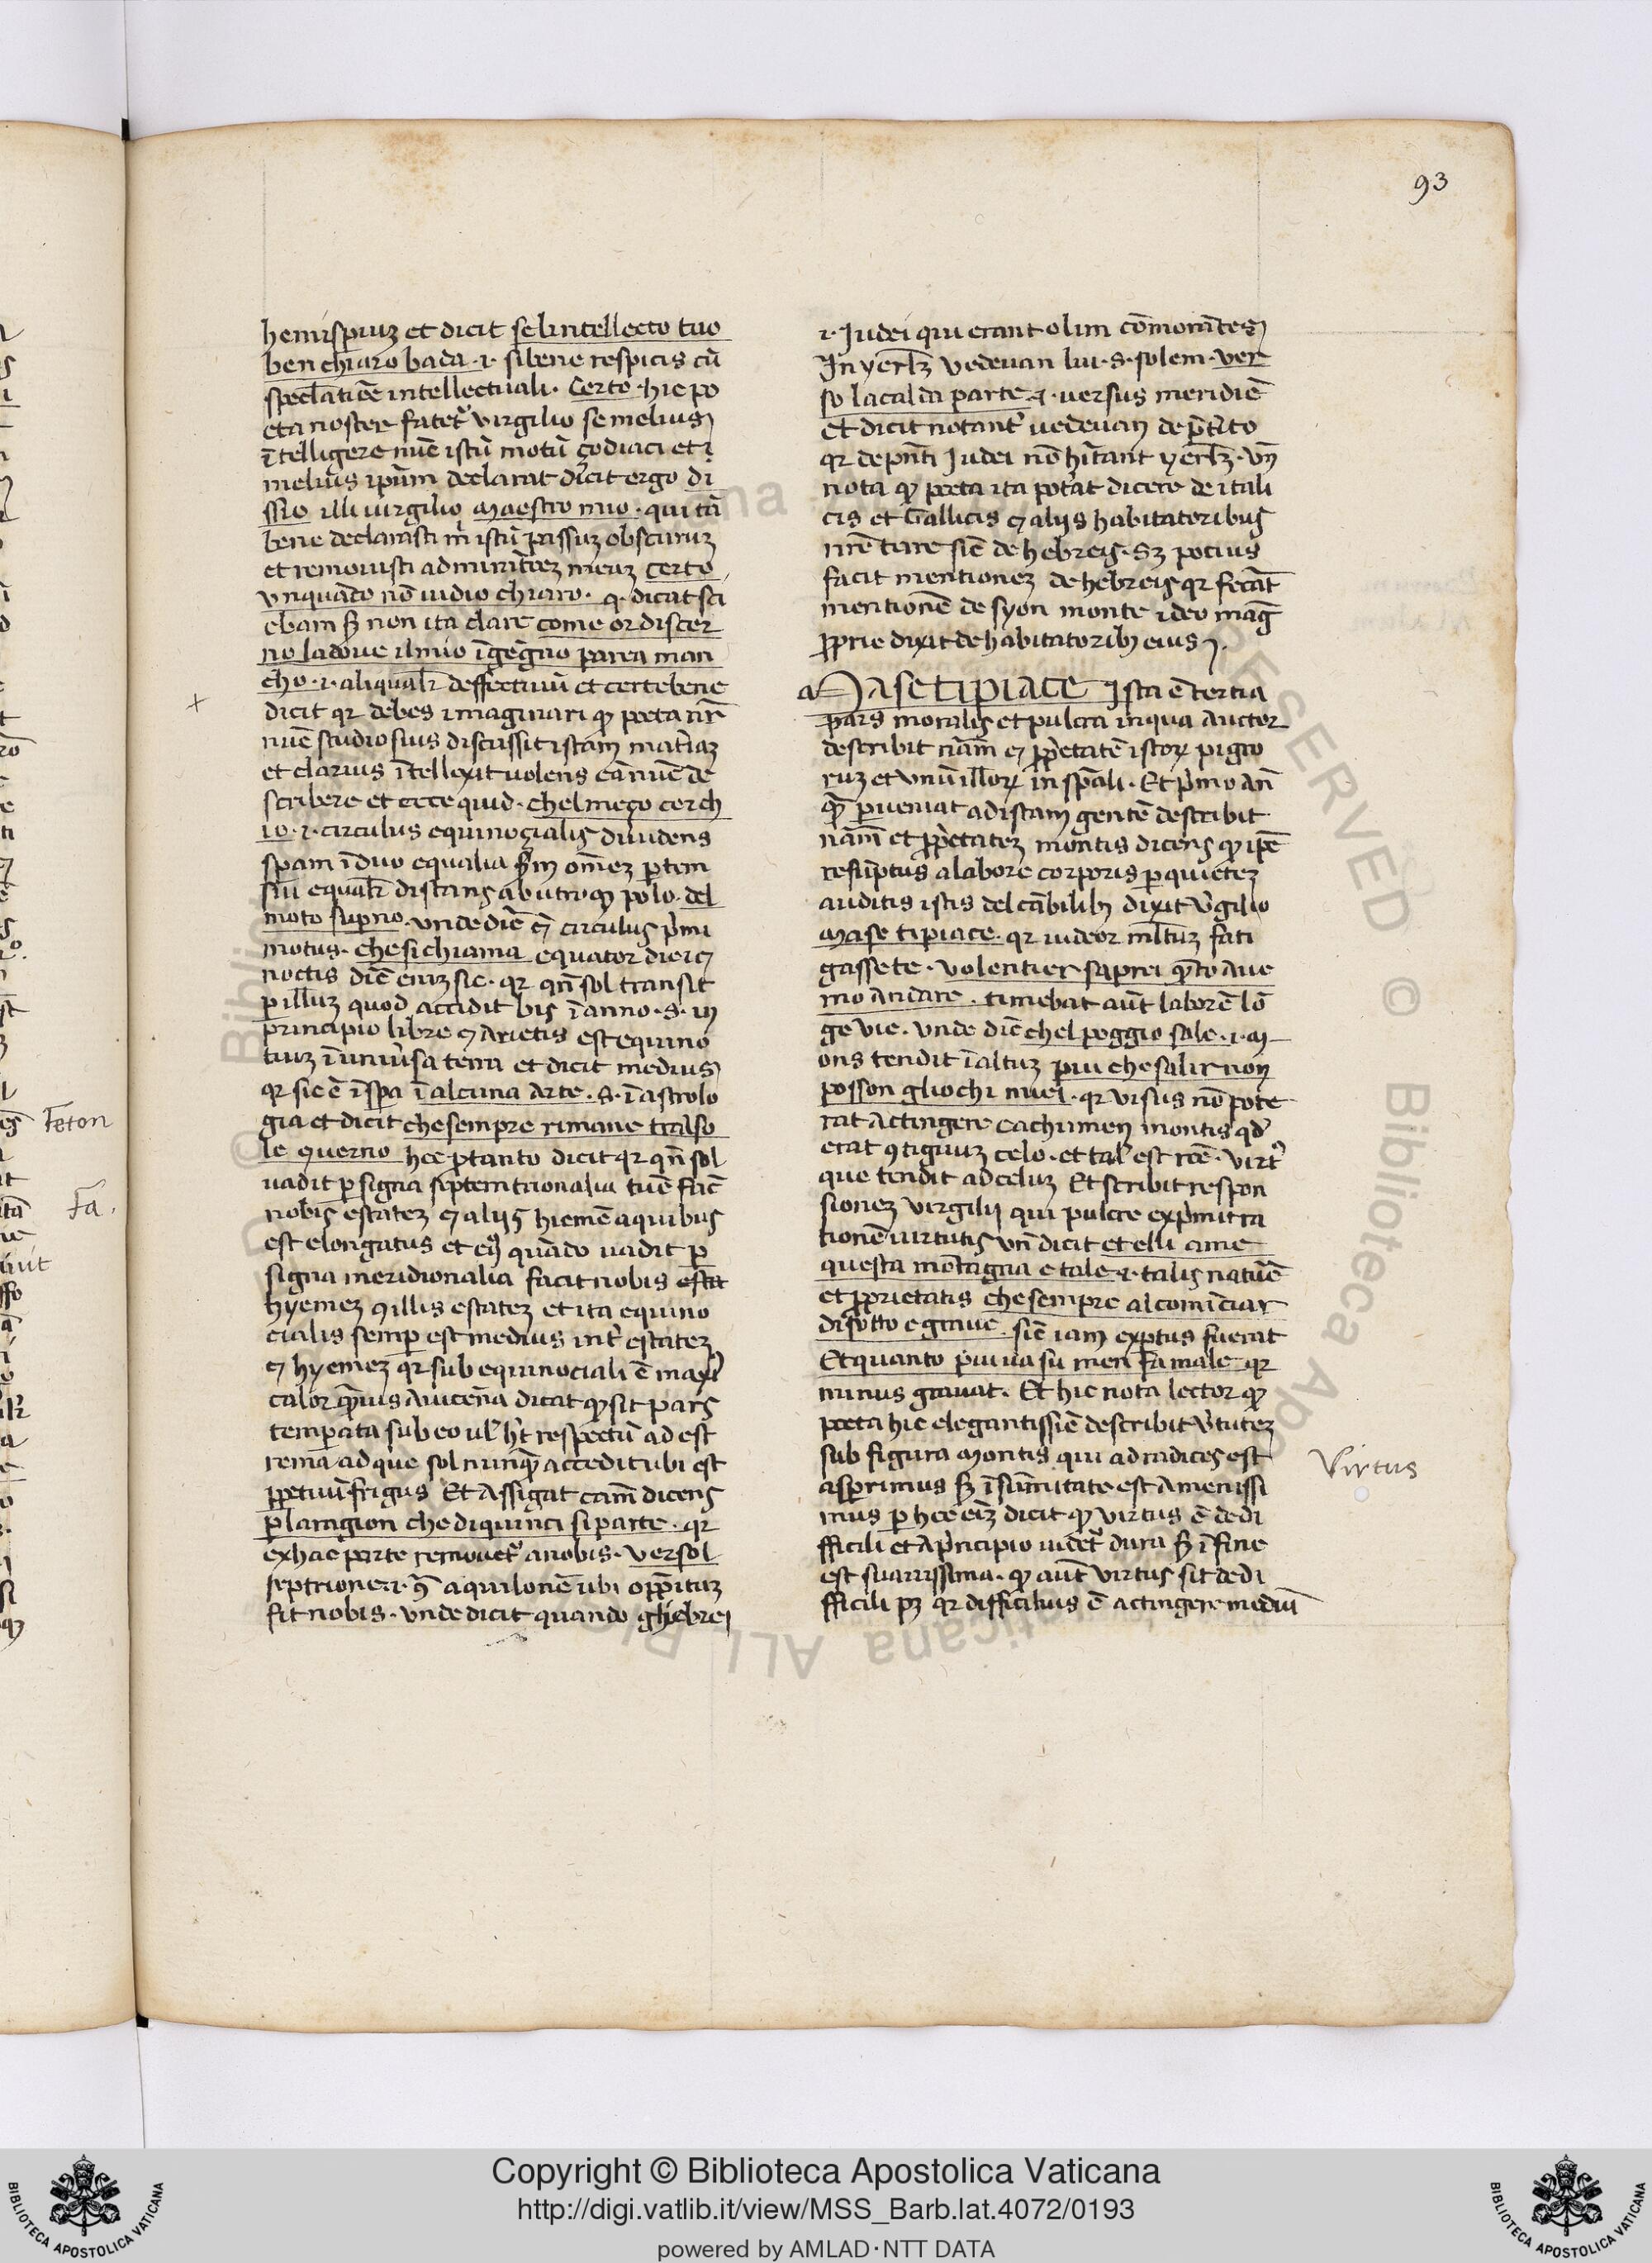 93
hemisp̄iuz et dicit selintellecto tuo
ben chiaro bada .i. si bene respicis cū
specl̄atiōe intellectuali. Certo. hic po
eta noster fatet᷑ virgilio se melius
ītelligere nūc istū motū çodiaci et
melius ipūm declarat dicit ergo di
ssio illi uirgilio maestro mio. qui tā
bene declarasti m̄ istū passuz obscuruz
et remouisti admirat̄oez meaz certo
vnquādo nō uidio chiaro. q. dicat sci
ebam s̄ non ita clare come or discer
no ladoue il mio īgegno parea man
cho .i. aliqual̄r deffectiuū et certe bene
dicit qr debes imaginari qꝫ poeta nr̄
nūc studio suis discussit istam mat̄iaz
et clarius ītellexit uolens eā nūc de
scribere et ecce quid. chel meço cerch
io .i. circulus equinoçialis diuidens
sp̄am ī duo equalia s̄m om̄ez p̄tem
sui equal̄r distans ab utroqꝫ polo. del
moto sup̄no. vnde diē qꝫ circulus p̄mi
motus. che si chiama equator diei ꝫ
noctis diē eniz sic. qr qn̄ sol transit
p illuz quod accidit bis ī anno .s. in
principio libre ꝫ arietis est equino
tiuz ī uniu̇sa terra et dicit medius
qr sic ē ī sp̄a ī alcuna arte .s. ī astrolo
gia et dicit che sempre rimane tra lso
le quer no hec p tanto dicit qr qn̄ sol
uadit p signa septemtrionalia tūc facē
nobis estatez ꝫ alijs hiemē a quibus
est elongatus et eqꝰ quādo uadit p
signa meridionalia facit nobis estat
hyemez ꝫ illis estatez et ita equino
cialis semp est medius int̄ estatez
ꝫ hyemez qr sub equinociali ē maxiꝰ
calor qāuis Auicena dicat qꝫ sit pars
temperata sub eo ul̄ h̄t respectū ad est
rema ad que sol nunqā accedit ubi est
p̄petuū frigus Et Assigat cām dicens
p la ragion che di quinci si parte. qr
ex hac parte remouet᷑ a nobis. ver sol
septrione .i. ꝫ̄ aquilonē ubi opp̄ituz
fit nobis. vnde dicit quando ghebrei
.i. Judei qui erant olim cōmorātes
Jn yerl̄z vedeuan lui .s. solem. ver
so la calda parte .i. uersus meridiē
et dicit notant̄ uedeuan de p̄t̄ito
qr de pn̄ti Judei nō hītant yerl̄z. vn̄
nota qꝫ poeta ita potat dicere de itali
cis et Gallicis ꝫ alijs habitatoribus
nrē terre sic̄ de hebreis. Sz pocius
facit mentionez de hebreis qr fecāt
mentionē de syon monte ideo maḡ
pp̄rie dixit de habitatoribꝫ eius.
a Ma se ti piace Jsta ē tertia
pars moralis et pulcra in qua auctor
describit nām ꝫ pp̄etatē istoꝝ pigro
ruz et vnū illoꝝ in spāli. Et p̄mo an̄
qā p̄ueniat ad istam gentē describit
nām et pp̄etatez montis dicens qꝫ ipē
resūptus a labore corporis p quietez
auditis istis delc̄abilibꝫ dixit v̇gilio
Ma se ti piace. qr uideor ml̄tuz fati
gasse te. volentier saprei qāto aue
mo andare. timebat aūt laborē lō
ge vie. vnde diē chel poggio sale .i. m
ons tendit ī altuz piu che salir non
posson gliochi miei. qr visus nō pote
rat actingere cachumen montis qd̄
erat ꝯtiguuz celo. et tal̄ est rc̄e. virt᷑
que tendit ad celuz Et scribit respon
sionez virgilij qui pulcre exp̄mit ra
tionē uirtutis vn̄ dicit et elli ame
questa mōtagna e tale .i. talis natuē
et pp̄rietatis che sempre al comīciar
di sotto e graue. sic̄ iam expertus fuerat
Et quanto piu ua su men fa male qr
minus grauat. Et hic nota lector qꝫ
poeta hic elegantissīe describit v̇tutez
sub figura montis qui ad radices est
asp̄rimus s̄ ī sūmitate est amenissi
mus p hec eīz dicit qꝫ virtus ē de di
fficili et a p̄ncipio uidet᷑ dura s̄ ī fine
est suauissima. qꝫ aūt virtus sit de di
fficili pꝫ qr difficilius ē actingere mediū
Feton
Fa.
Virtus
Copyright © Biblioteca Apostolica Vaticana
http://digi.vatlib.it/view/MSS_Barb.lat.4072/0193
powered by AMLAD·NTT DATA
BIBLIOTECA APOSTOLICA VATICANA
BIBLIOTECA APOSTOLICA VATICANA